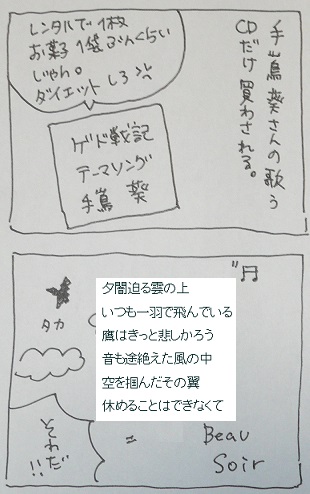 手嶌葵さんの歌う
CDだけ買わされる。
レンタルで1枚
お菓子1袋ぶんくらい
じゃん。
ダイエットしろ
ゲド戦記
テーマソング
手嶌 葵
タカ
夕闇迫る雲の上
いつも一羽で飛んでいる
鷹はきっと悲しかろう
音も途絶えた風の中
空を掴んだその翼
休めることはできなくて
Beau
Soir
それだ
!!